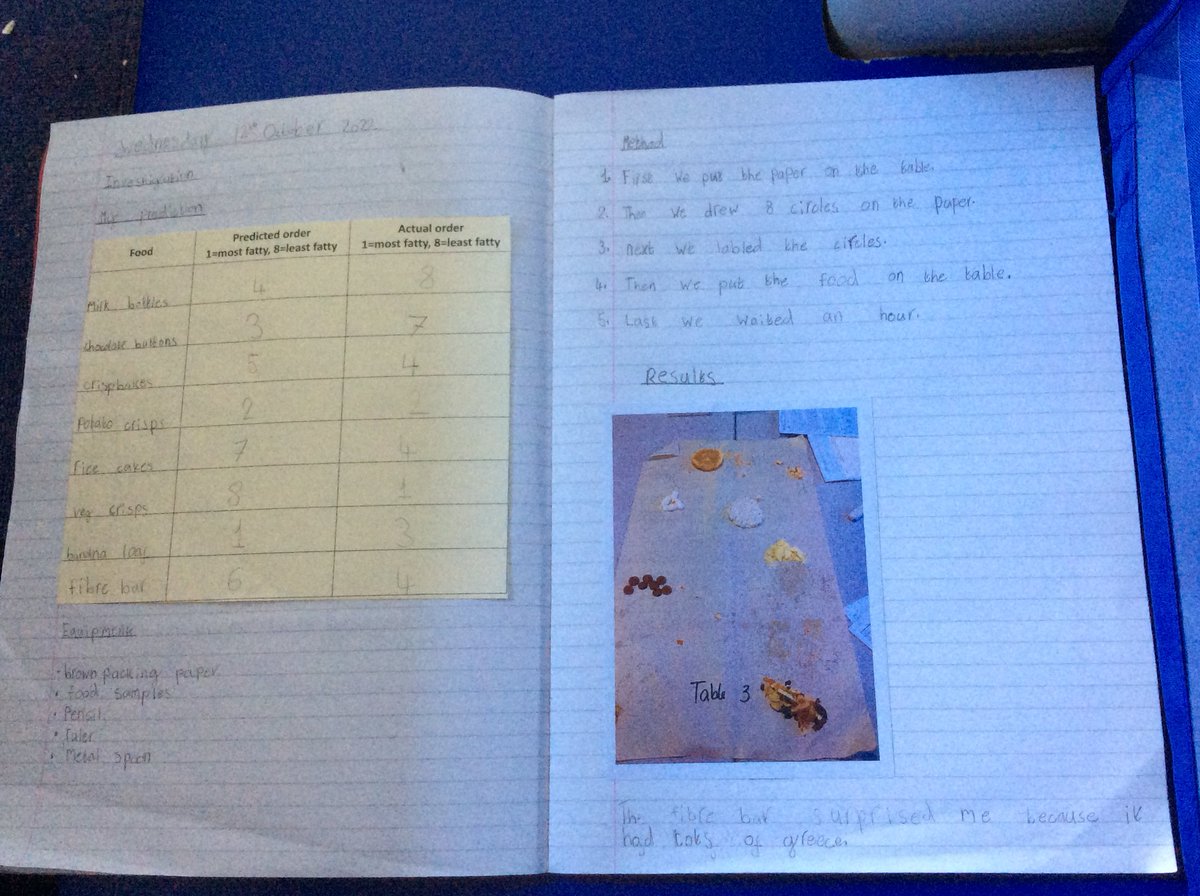 Wednesday 12th October 2022
Investigation
My prediction
Food Predicted order 1=most fatty, 8=least fatty Actual order 1=most fatty, 8=least fatty
Milk bottles 4 8
chocolate buttons 3 7
crispbakes 5 4
Potato crisps 2 2
rice cakes 7 4
veg crisps 8 1
banana loaf 1 3
fibre bar 6 4
Equipment
• brown packing paper
• food samples
• Pencil
• ruler
• Metal spoon
Method
1. First we put the paper on the table.
2. Then we drew 8 circles on the paper.
3. Next we labled the circles.
4. Then we put the food on the table.
5. Last we waited an hour.
Results
Table 3
The fibre bar surprised me because it
had lots of greece.